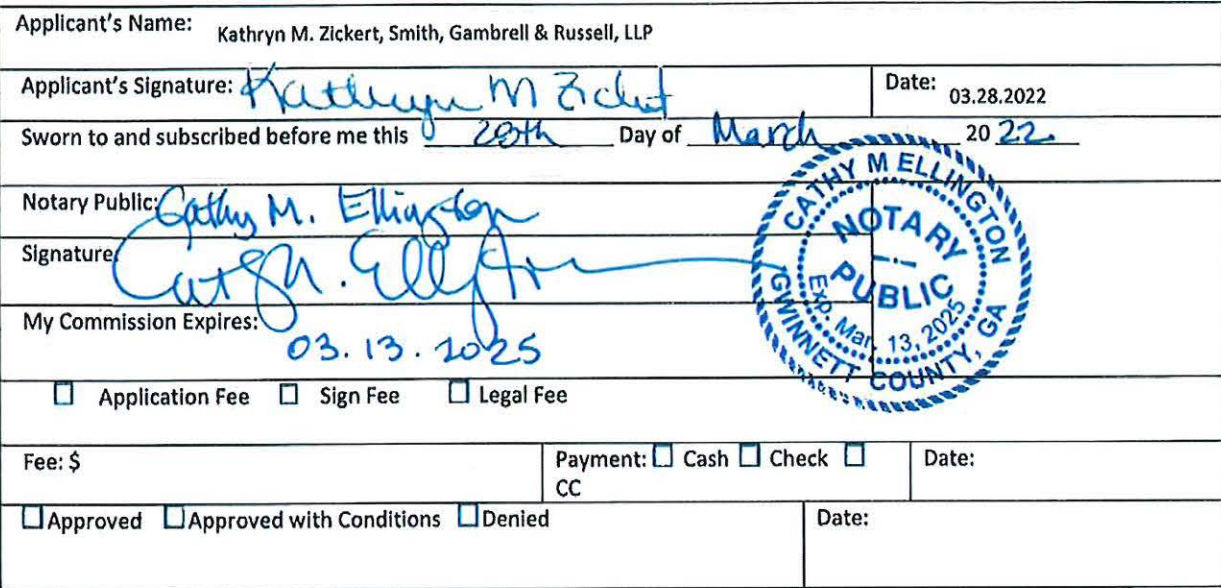 Applicant's Name: Kathryn M. Zickert, Smith, Gambrell & Russell, LLP
Applicant's Signature: Kathryn M Zickert Date: 03.28.2022
Sworn to and subscribed before me this 28th Day of March 20 22.
Notary Public: Cathy M. Ellington
Signature: Cathy M. Ellington
My Commission Expires: 03.13.2025
CATHY M ELLINGTON
NOTARY
PUBLIC
Exp. Mar. 13, 2025
GWINNETT COUNTY, GA
☐ Application Fee ☐ Sign Fee ☐ Legal Fee
Fee: $ Payment: ☐ Cash ☐ Check ☐
CC
Date:
☐ Approved ☐ Approved with Conditions ☐ Denied Date: